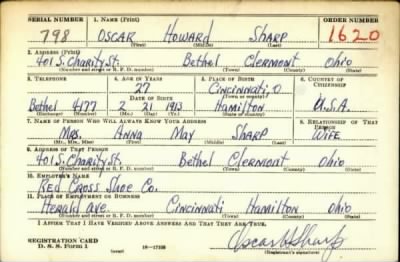 SERIAL NUMBER 1. NAME (Print) ORDER NUMBER
798 OSCAR HOWARD SHARP 1620
(First) (Middle) (Last)
2. ADDRESS (Print)
401 S. Charity St. Bethel Clermont Ohio
(Number and street or R. F. D. number) (Town) (County) (State)
3. TELEPHONE 4. AGE IN YEARS 5. PLACE OF BIRTH 6. COUNTRY OF CITIZENSHIP
27 Cincinnati, O
DATE OF BIRTH (Town or county)
Bethel 4177 2 21 1913 Hamilton U.S.A.
(Exchange) (Number) (Mo.) (Day) (Yr.) (State or country)
7. NAME OF PERSON WHO WILL ALWAYS KNOW YOUR ADDRESS 8. RELATIONSHIP OF THAT PERSON
Mrs. Anna May Sharp Wife
(Mr., Mrs., Miss) (First) (Middle) (Last)
9. ADDRESS OF THAT PERSON
401 S. Charity St. Bethel Clermont Ohio
(Number and street or R. F. D. number) (Town) (County) (State)
10. EMPLOYER'S NAME
Red Cross Shoe Co.
11. PLACE OF EMPLOYMENT OR BUSINESS
Herald Ave. Cincinnati Hamilton Ohio
(Number and street or R. F. D. number) (Town) (County) (State)
I AFFIRM THAT I HAVE VERIFIED ABOVE ANSWERS AND THAT THEY ARE TRUE.
REGISTRATION CARD Oscar H Sharp
D. S. S. Form 1 (Registrant's signature)